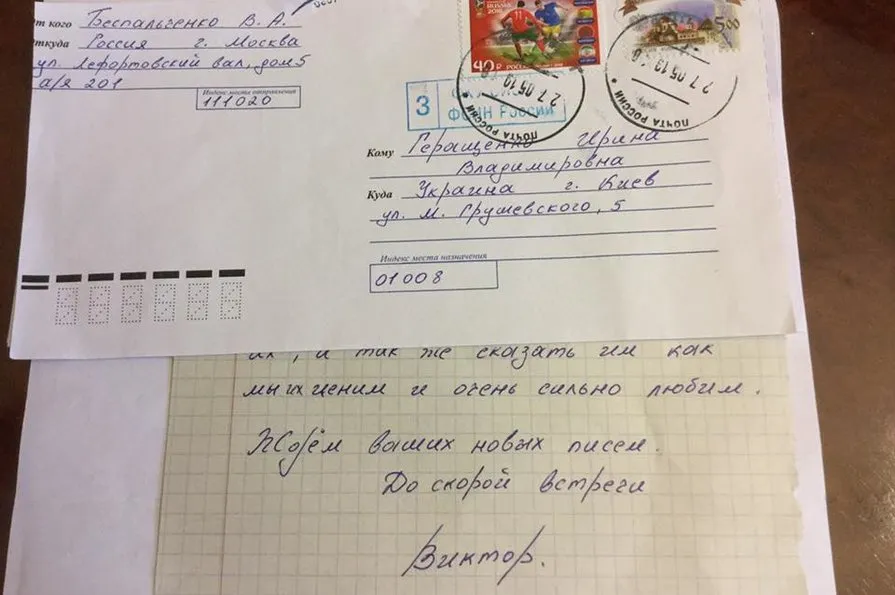 от кого Беспальченко В. А.
откуда Россия г. Москва
ул. Лефортовский вал, дом 5
а/я 201
Индекс места отправления
111020
RUSSIA
2018
40 ₽
РОССИЯ
5.00
27 05 19
27 05 19
ПОЧТА РОССИИ
ПОЧТА РОССИИ
З
России
Кому Геращенко Ирина
Владимировна
Куда Украина г. Киев
ул. М. Грушевского, 5
Индекс места назначения
01008
их, а так же сказать им как
мы их ценим и очень сильно любим.
Ждём ваших новых писем.
До скорой встречи
Виктор.